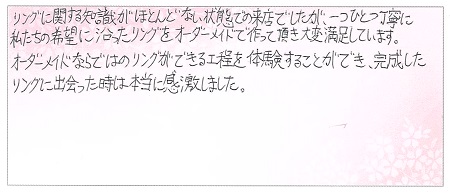 リングに関する知識がほとんどない状態での来店でしたが、一つひとつ丁寧に
私たちの希望に沿ったリングをオーダーメイドで作って頂き大変満足しています。
オーダーメイドならではのリングができる工程を体験することができ、完成した
リングに出会った時は本当に感激しました。